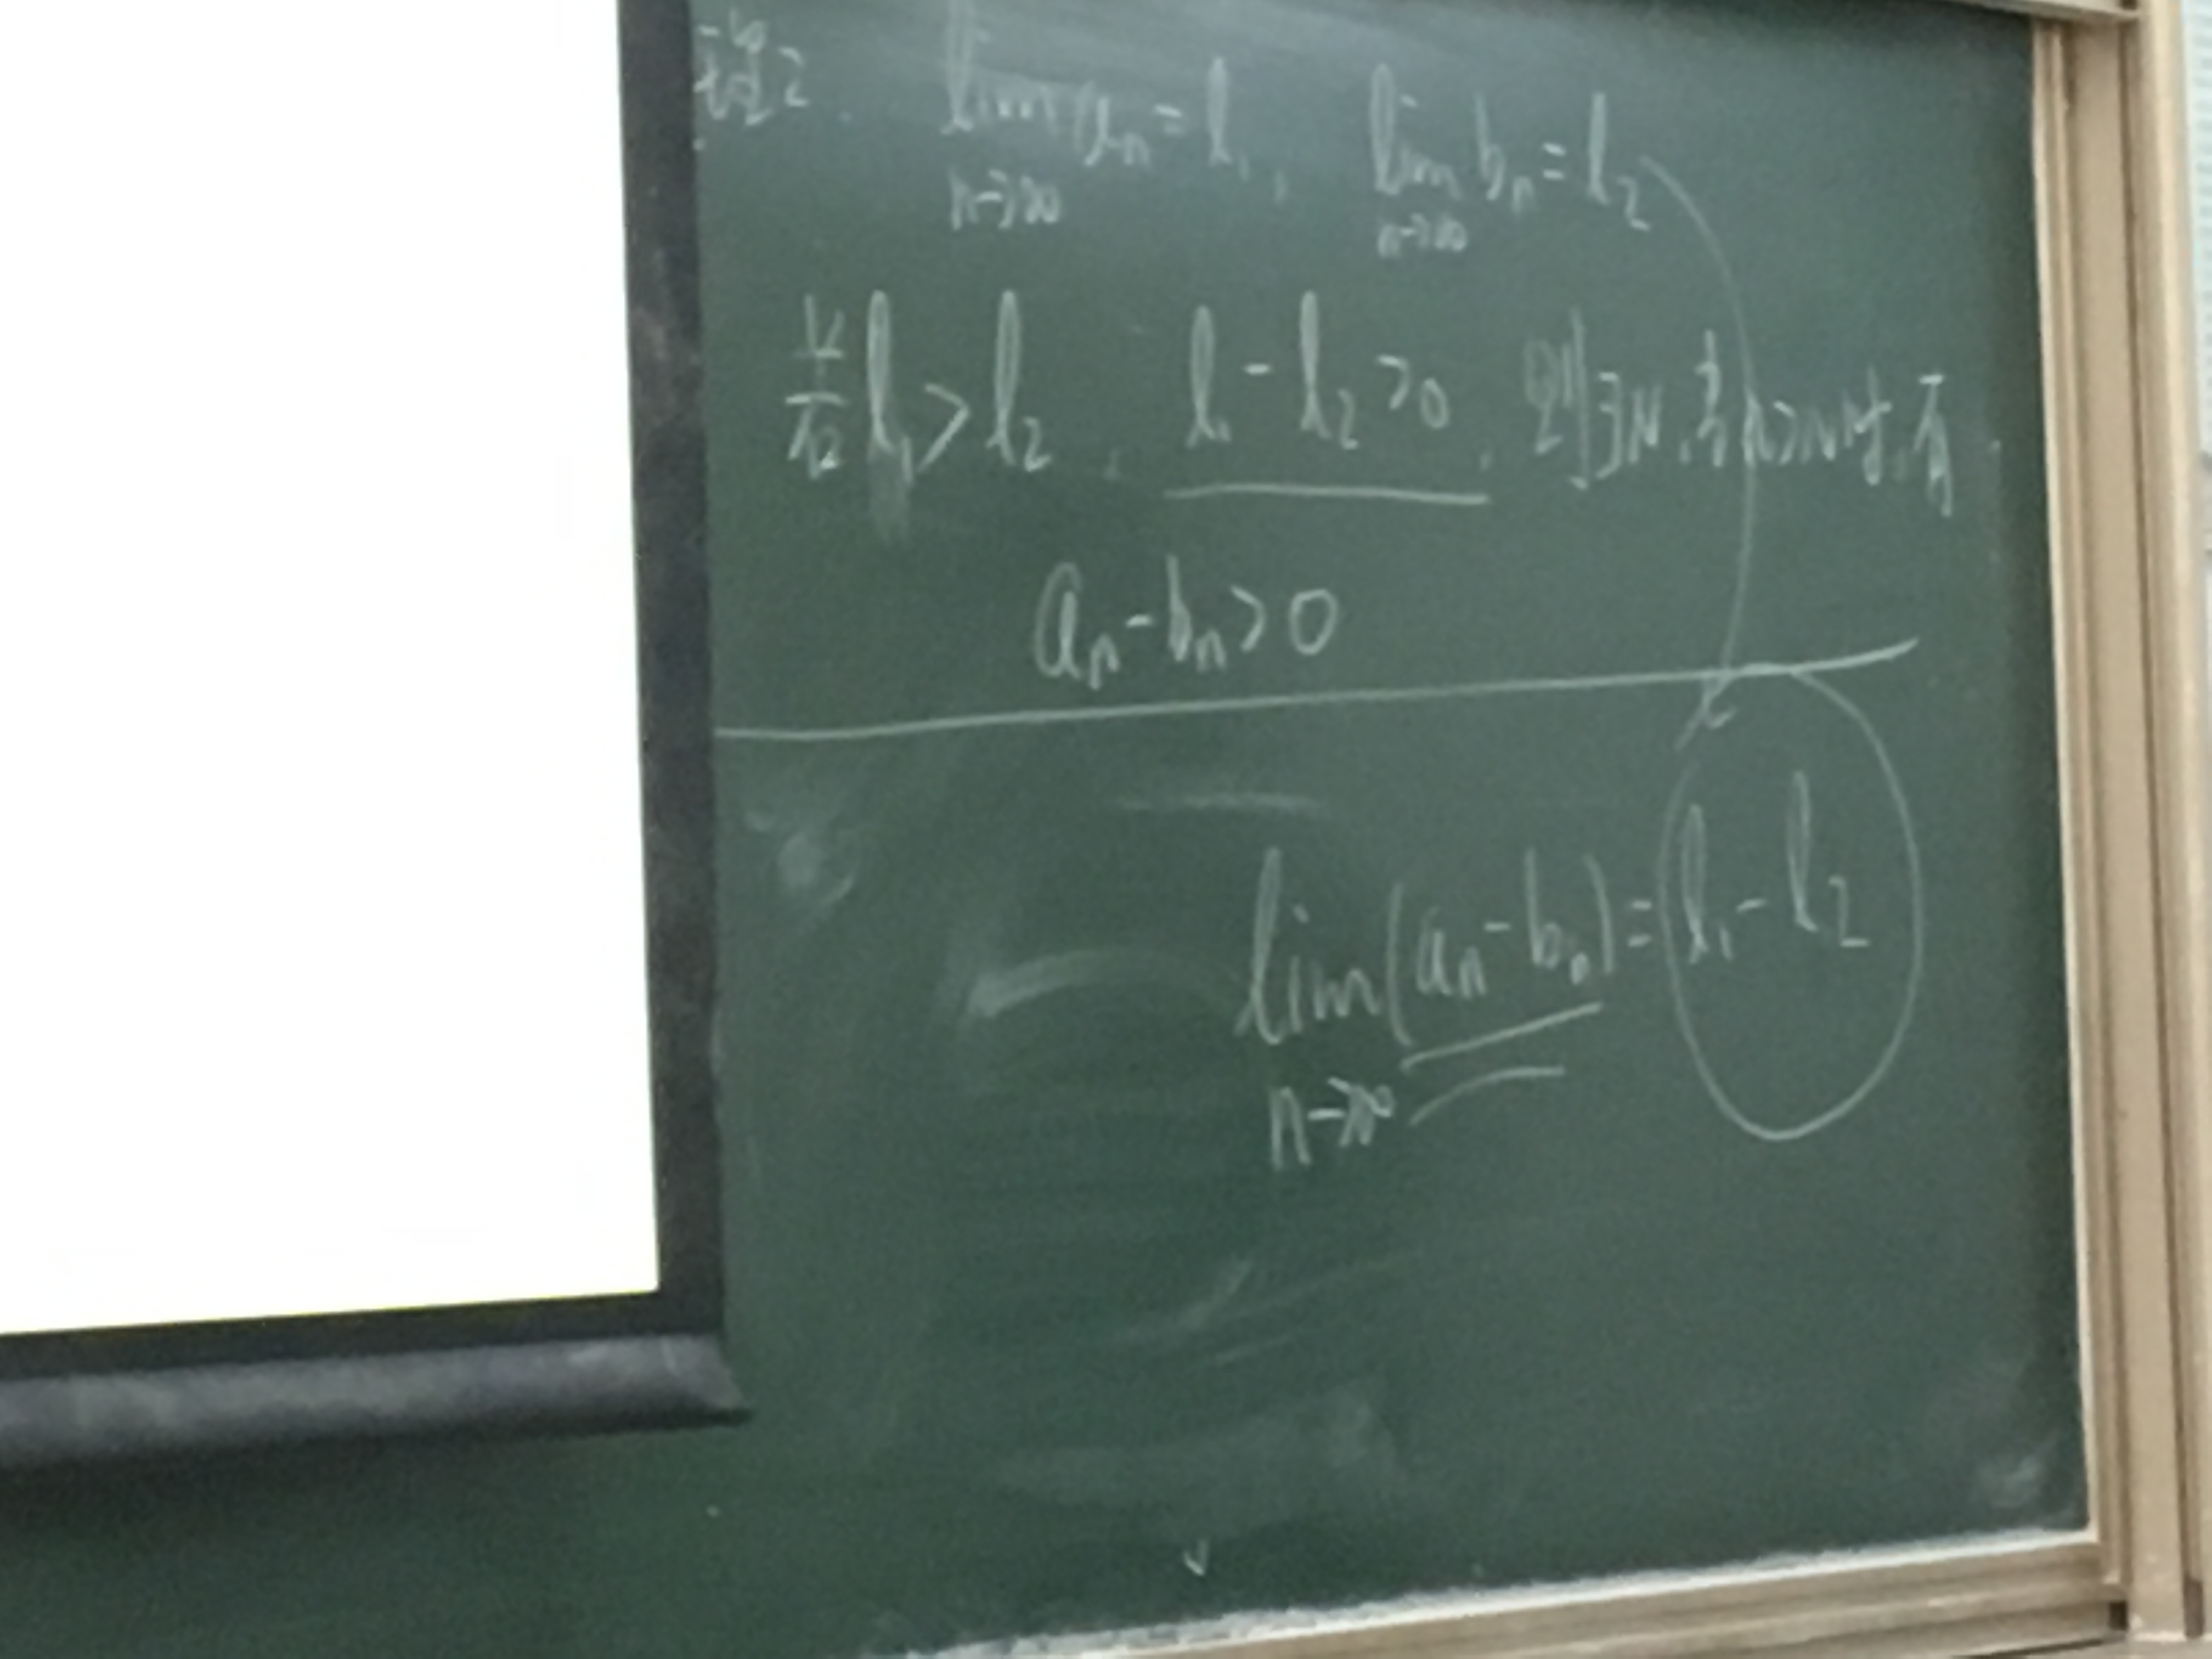 2. lim aₙ = l₁, lim bₙ = l₂
n→∞ n→∞
若 l₁ > l₂, l₁ - l₂ > 0, 则∃N, 当n>N时, 有
aₙ - bₙ > 0
lim (aₙ - bₙ) = l₁ - l₂
n→∞